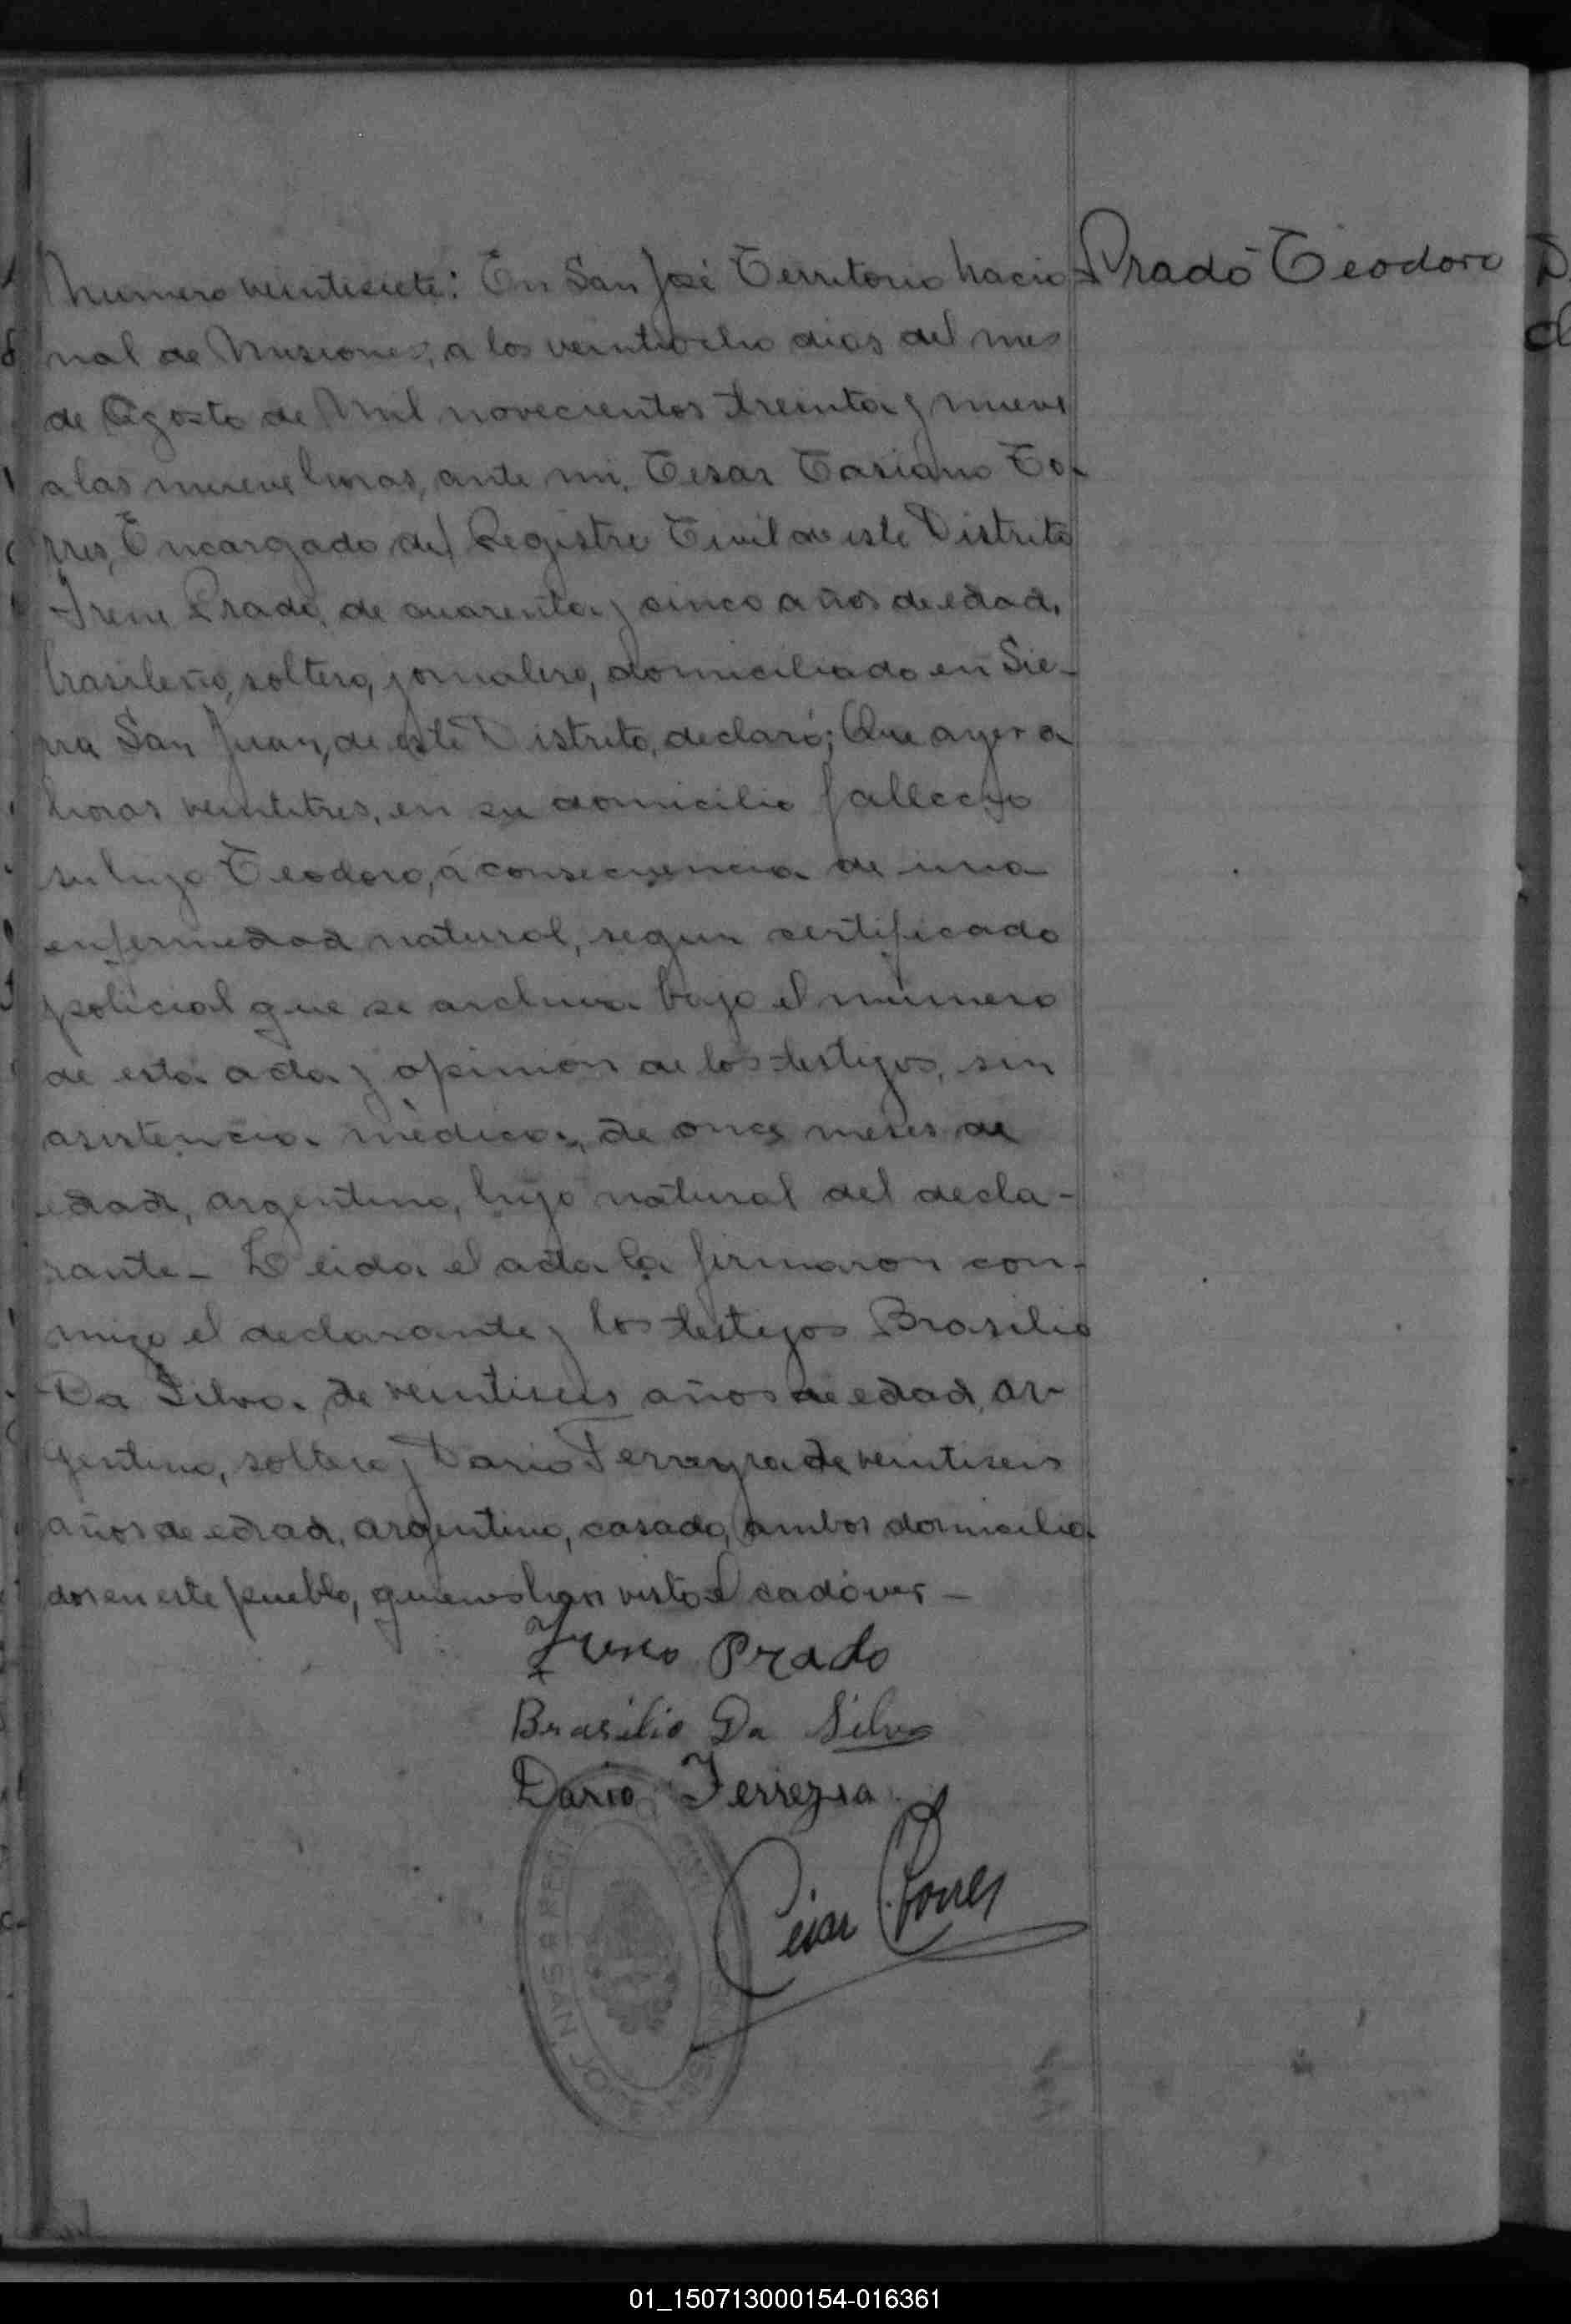 Prado Teodoro
Numero veintisiete: En San José Territorio Nacio-
nal de Misiones, a los veintiocho dias del mes
de Agosto de Mil novecientos treinta y nueve
a las nueve horas, ante mi, Cesar Casiano To-
rres, Encargado del Registro Civil de este Distrito
Irene Prado, de cuarenta y cinco años de edad,
brasileño, soltero, jornalero, domiciliado en Sie-
rra San Juan, de este Distrito, declaró; Que ayer a
horas veintitres, en su domicilio falleció
su hijo Teodoro, á consecuencia de una
enfermedad natural, segun certificado
policial que se archiva bajo el número
de esta acta y opinión de los testigos, sin
asistencia mèdica, de once meses de
edad, argentino, hijo natural del decla-
rante_ Leida el acta la firmaron con-
migo el declarante y los testigos Brasilio
Da Silva, de veintiseis años de edad, ar-
gentino, soltero y Dario Ferreyra de veintiseis
años de edad, argentino, casado, ambos domicilia
dos en este pueblo, quienes han visto el cadáver_
Prado
Brasilio Da Silva
Dario Ferreyra
Cesar Torres
SAN JOSE
01_150713000154-016361